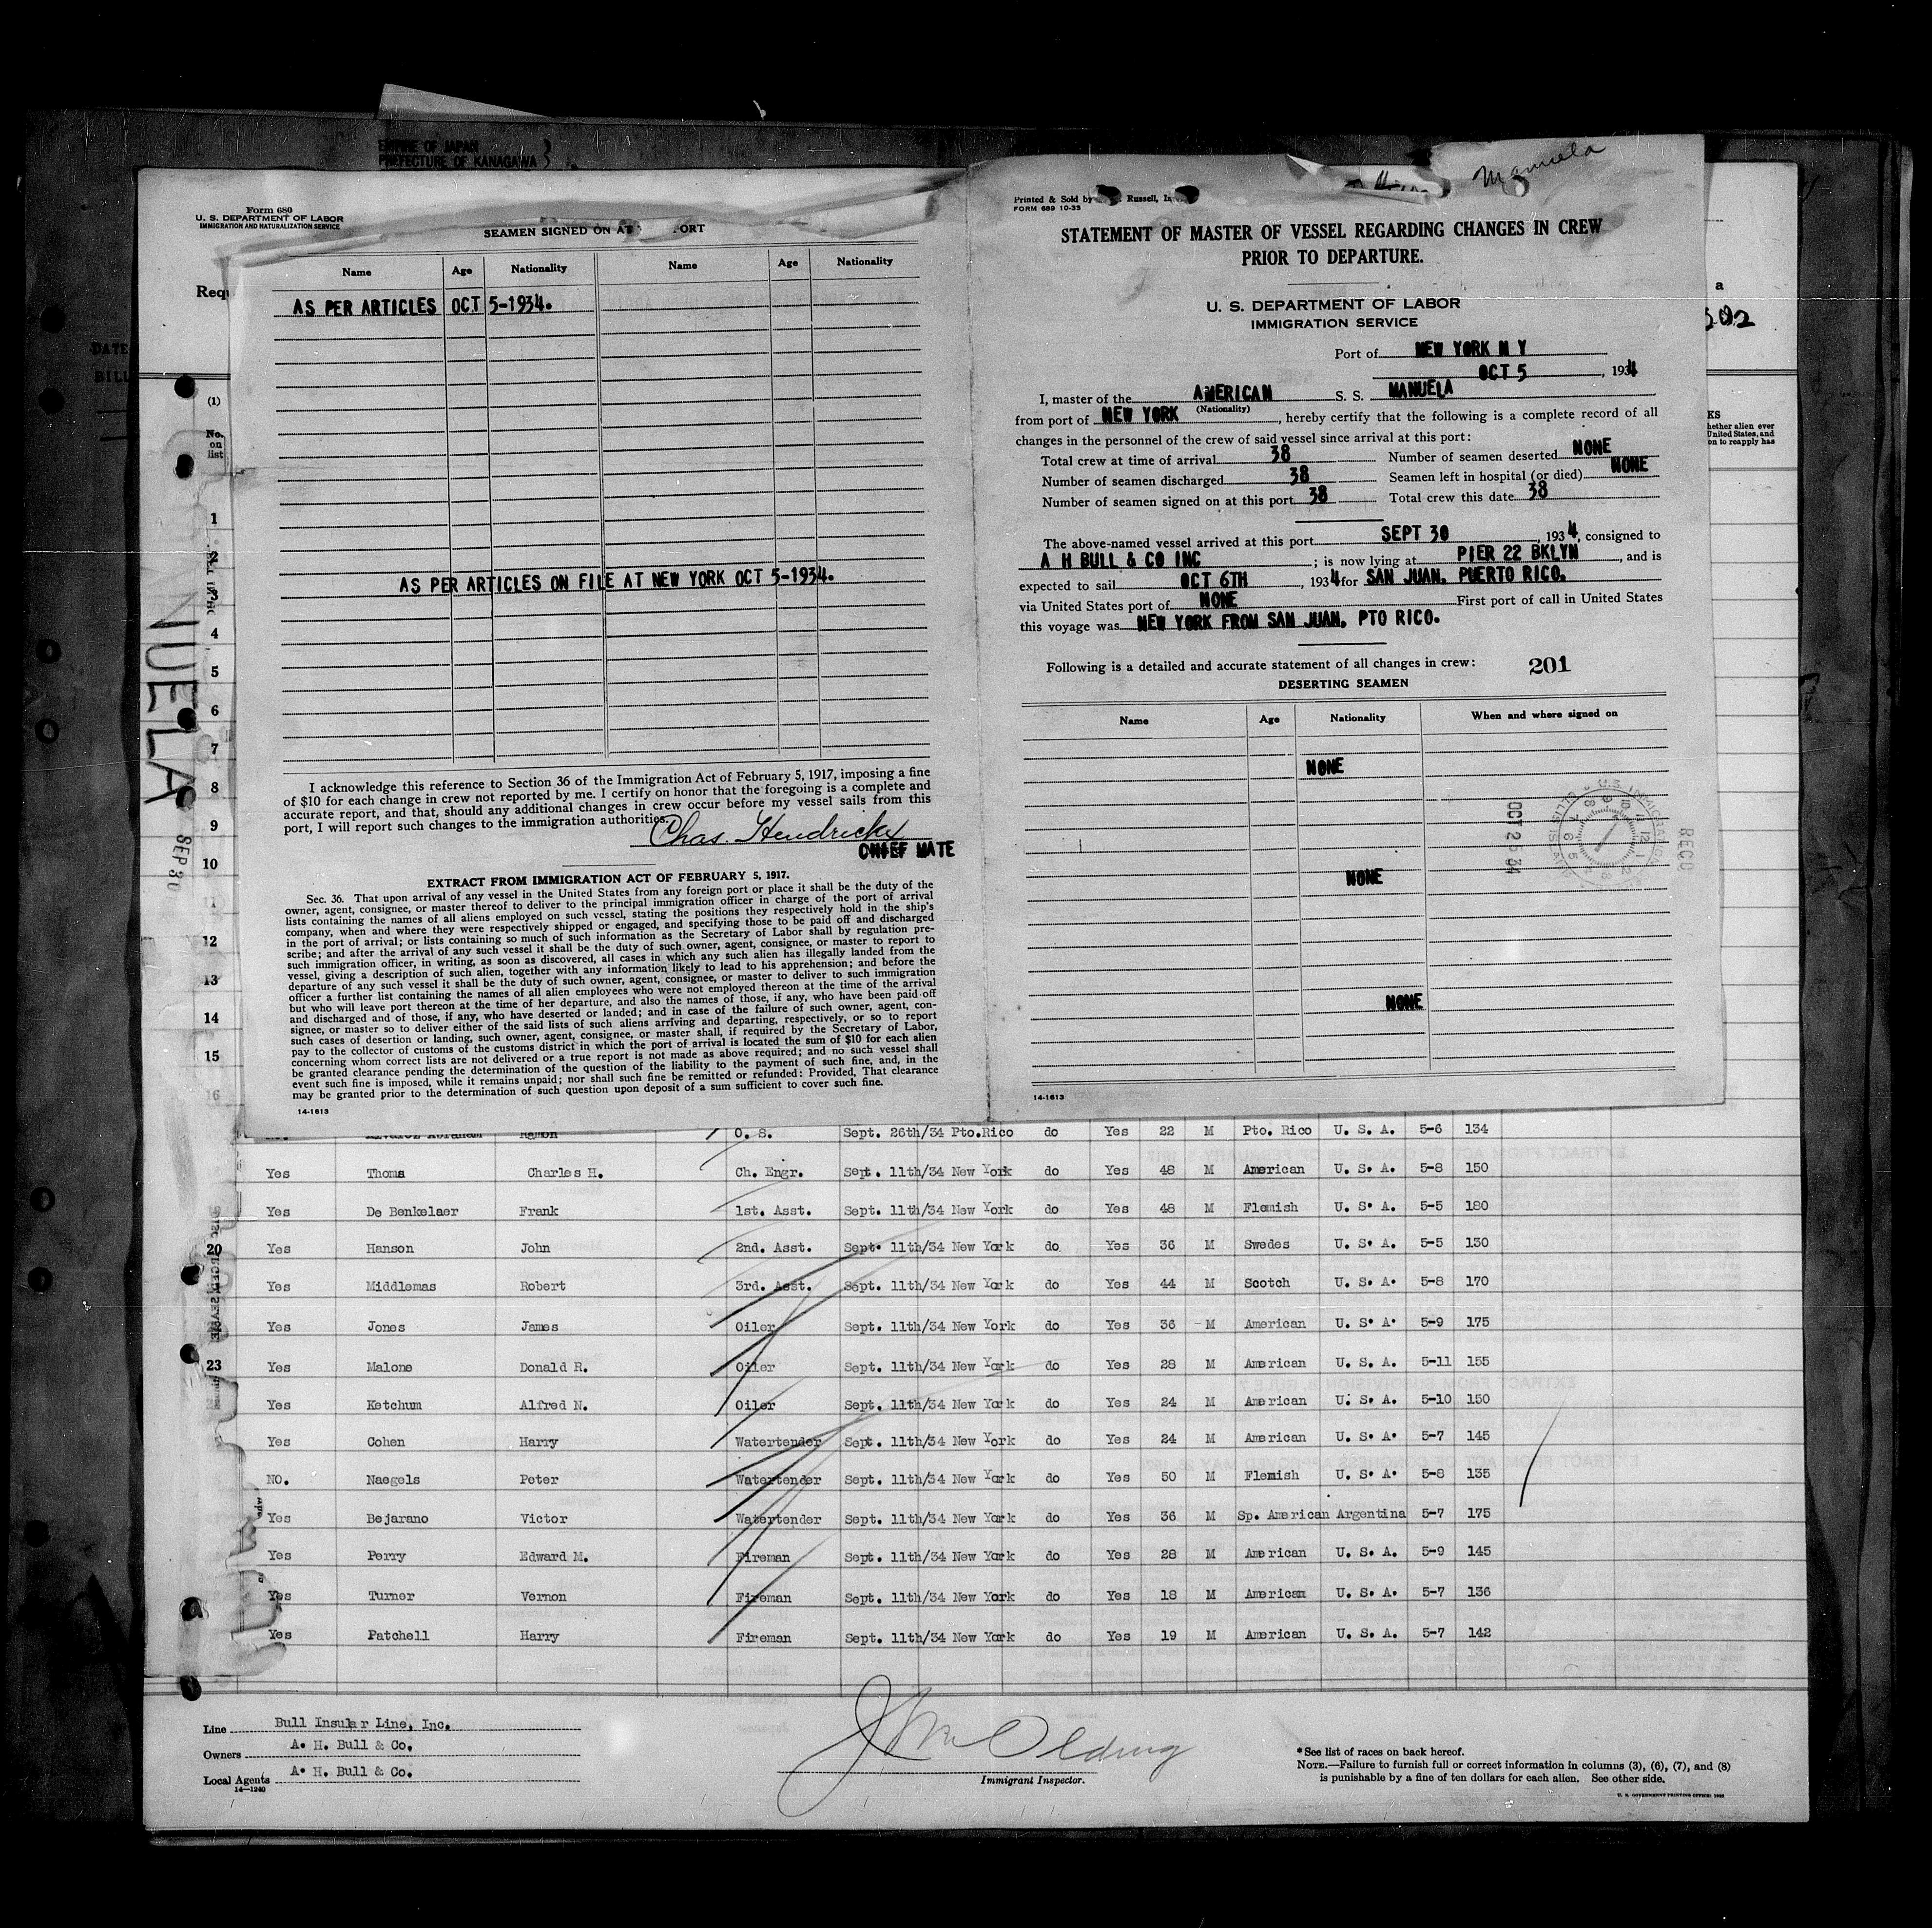 EMPIRE OF JAPAN
PREFECTURE OF KANAGAWA 3
DATE
BILL
Form 680
U. S. DEPARTMENT OF LABOR
IMMIGRATION AND NATURALIZATION SERVICE
Requ
(1)
No. on list
SEAMEN SIGNED ON AT ORT
Name Age Nationality Name Age Nationality
AS PER ARTICLES OCT 5-1934.
AS PER ARTICLES ON FILE AT NEW YORK OCT 5-1934.
I acknowledge this reference to Section 36 of the Immigration Act of February 5, 1917, imposing a fine
of $10 for each change in crew not reported by me. I certify on honor that the foregoing is a complete and
accurate report, and that, should any additional changes in crew occur before my vessel sails from this
port, I will report such changes to the immigration authorities.
Chas. Hendrickx
CHIEF MATE
EXTRACT FROM IMMIGRATION ACT OF FEBRUARY 5, 1917.
Sec. 36. That upon arrival of any vessel in the United States from any foreign port or place it shall be the duty of the
owner, agent, consignee, or master thereof to deliver to the principal immigration officer in charge of the port of arrival
lists containing the names of all aliens employed on such vessel, stating the positions they respectively hold in the ship's
company, when and where they were respectively shipped or engaged, and specifying those to be paid off and discharged
in the port of arrival; or lists containing so much of such information as the Secretary of Labor shall by regulation pre-
scribe; and after the arrival of any such vessel it shall be the duty of such owner, agent, consignee, or master to report to
such immigration officer, in writing, as soon as discovered, all cases in which any such alien has illegally landed from the
vessel, giving a description of such alien, together with any information likely to lead to his apprehension; and before the
departure of any such vessel it shall be the duty of such owner, agent, consignee, or master to deliver to such immigration
officer a further list containing the names of all alien employees who were not employed thereon at the time of the arrival
but who will leave port thereon at the time of her departure, and also the names of those, if any, who have been paid off
and discharged and of those, if any, who have deserted or landed; and in case of the failure of such owner, agent, con-
signee, or master so to deliver either of the said lists of such aliens arriving and departing, respectively, or so to report
such cases of desertion or landing, such owner, agent, consignee, or master shall, if required by the Secretary of Labor,
pay to the collector of customs of the customs district in which the port of arrival is located the sum of $10 for each alien
concerning whom correct lists are not delivered or a true report is not made as above required; and no such vessel shall
be granted clearance pending the determination of the question of the liability to the payment of such fine, and, in the
event such fine is imposed, while it remains unpaid; nor shall such fine be remitted or refunded: Provided, That clearance
may be granted prior to the determination of such question upon deposit of a sum sufficient to cover such fine.
14-1613
Manuela
Printed & Sold by Russell,
FORM 689 10-33
STATEMENT OF MASTER OF VESSEL REGARDING CHANGES IN CREW
PRIOR TO DEPARTURE.
U. S. DEPARTMENT OF LABOR
IMMIGRATION SERVICE
Port of NEW YORK N Y
OCT 5, 1934
I, master of the AMERICAN S. S. MANUELA
(Nationality)
from port of NEW YORK, hereby certify that the following is a complete record of all
changes in the personnel of the crew of said vessel since arrival at this port:
Total crew at time of arrival 38 Number of seamen deserted NONE
Number of seamen discharged 38 Seamen left in hospital (or died) NONE
Number of seamen signed on at this port 38 Total crew this date 38
The above-named vessel arrived at this port SEPT 30, 1934, consigned to
A H BULL & CO INC; is now lying at PIER 22 BKLYN, and is
expected to sail OCT 6TH, 1934 for SAN JUAN. PUERTO RICO.
via United States port of NONE First port of call in United States
this voyage was NEW YORK FROM SAN JUAN, PTO RICO.
Following is a detailed and accurate statement of all changes in crew: 201
DESERTING SEAMEN
Name Age Nationality When and where signed on
NONE
NONE
NONE
OCT 25 34
RECD
14-1613
a
202
KS
hether alien ever
United States, and
on to reapply has
NUELA
SEP 30
1
2
3
4
5
6
7
8
9
10
11
12
13
14
15
16
Alvarez Abraham Ramon O. S. Sept. 26th/34 Pto.Rico do Yes 22 M Pto. Rico U. S. A. 5-6 134
Yes Thoms Charles H. Ch. Engr. Sept. 11th/34 New York do Yes 48 M American U. S. A. 5-8 150
Yes De Benkelaer Frank 1st. Asst. Sept. 11th/34 New York do Yes 48 M Flemish U. S. A. 5-5 180
20 Yes Hanson John 2nd. Asst. Sept. 11th/34 New York do Yes 36 M Swedes U. S. A. 5-5 130
Yes Middlemas Robert 3rd. Asst. Sept. 11th/34 New York do Yes 44 M Scotch U. S. A. 5-8 170
Yes Jones James Oiler Sept. 11th/34 New York do Yes 36 M American U. S. A. 5-9 175
23 Yes Malone Donald R. Oiler Sept. 11th/34 New York do Yes 28 M American U. S. A. 5-11 155
Yes Ketchum Alfred N. Oiler Sept. 11th/34 New York do Yes 24 M American U. S. A. 5-10 150
Yes Cohen Harry Watertender Sept. 11th/34 New York do Yes 24 M American U. S. A. 5-7 145
NO. Naegels Peter Watertender Sept. 11th/34 New York do Yes 50 M Flemish U. S. A. 5-8 135
Yes Bejarano Victor Watertender Sept. 11th/34 New York do Yes 36 M Sp. American Argentina 5-7 175
Yes Perry Edward M. Fireman Sept. 11th/34 New York do Yes 28 M American U. S. A. 5-9 145
Yes Turner Vernon Fireman Sept. 11th/34 New York do Yes 18 M American U. S. A. 5-7 136
Yes Patchell Harry Fireman Sept. 11th/34 New York do Yes 19 M American U. S. A. 5-7 142
Line Bull Insular Line, Inc.
Owners A. H. Bull & Co.
Local Agents A. H. Bull & Co.
14-1240
Immigrant Inspector.
*See list of races on back hereof.
NOTE.—Failure to furnish full or correct information in columns (3), (6), (7), and (8)
is punishable by a fine of ten dollars for each alien. See other side.
U. S. GOVERNMENT PRINTING OFFICE: